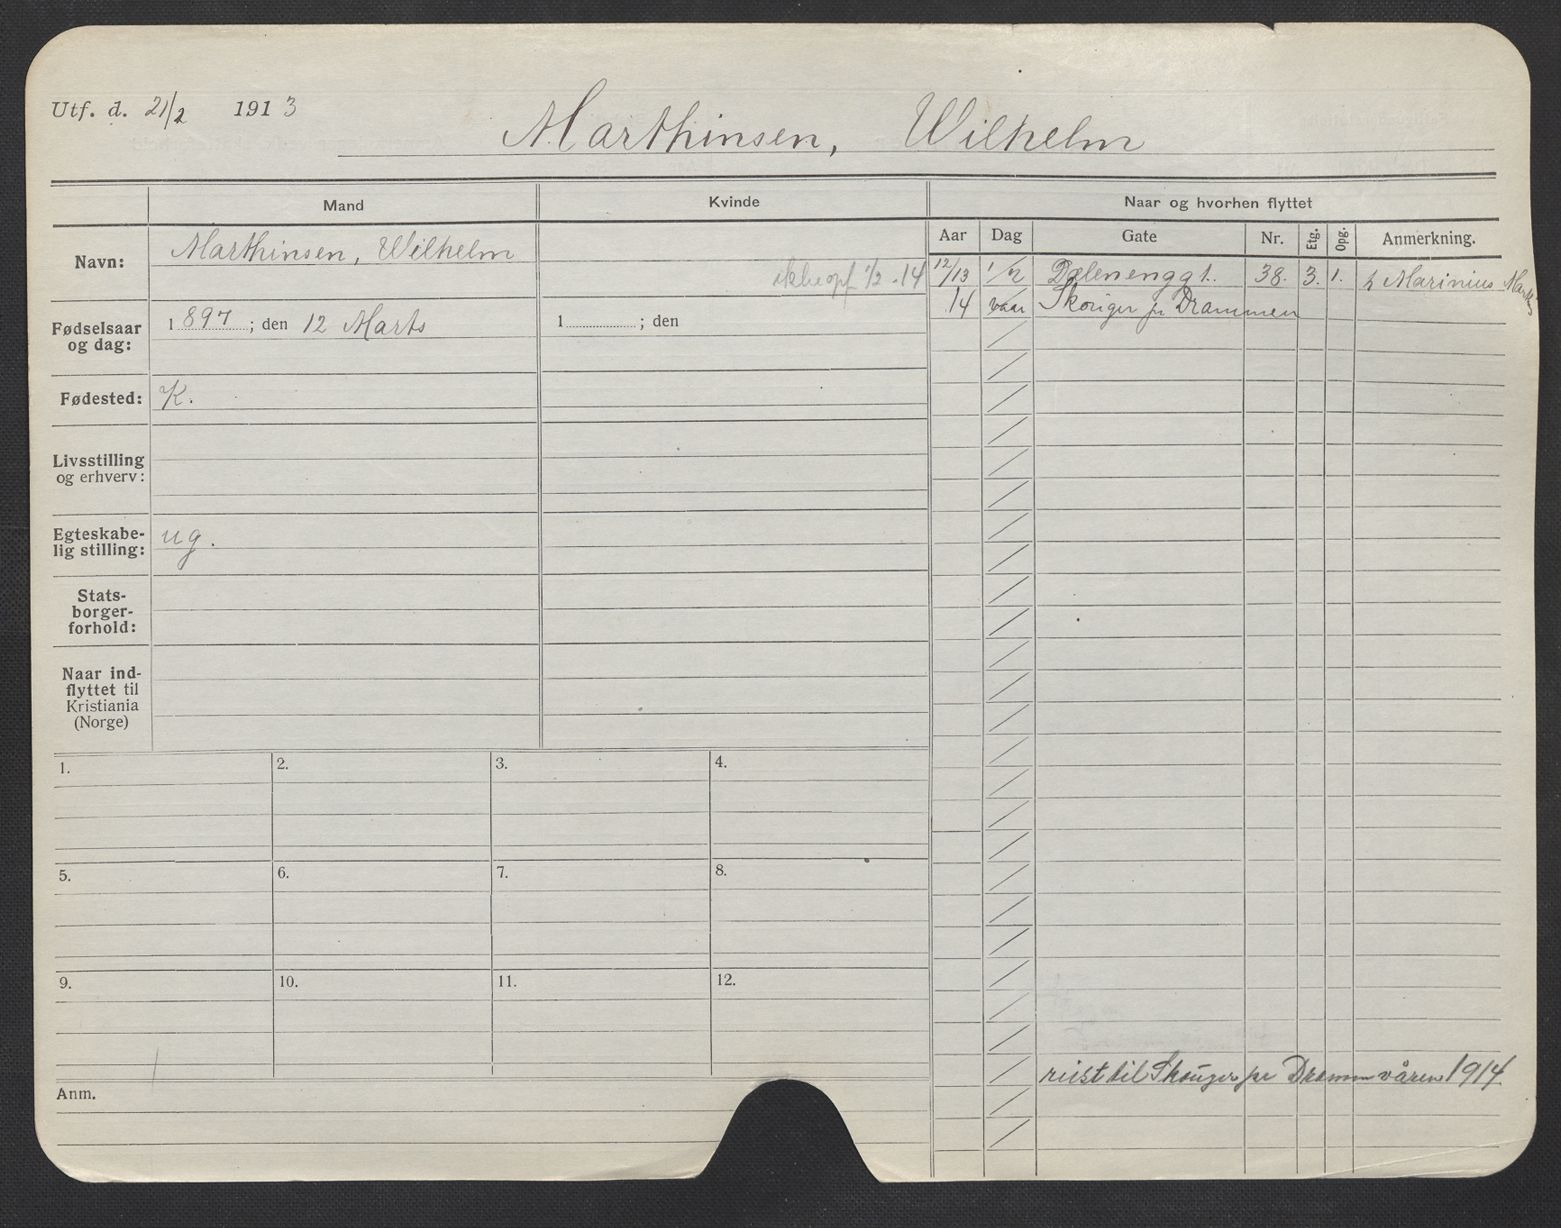 Utf. d. 21/2 1913
Marthinsen, Wilhelm
Mand
Kvinde
Naar og hvorhen flyttet
Aar Dag Gate Nr. Etg. Opg. Anmerkning.
Navn: Marthinsen, Wilhelm
ikke opf 1/2 .14
12/13 1/2 Dælenenggt. 38. 3. 1. h Marinius
14 vaar Skouger pr Drammen
Fødselsaar og dag: 1897; den 12 Marts
1 ; den
Fødested: K.
Livsstilling og erhverv:
Egteskabe-
lig stilling: ug.
Stats-
borger-
forhold:
Naar ind-
flyttet til
Kristiania
(Norge)
1. 2. 3. 4.
5. 6. 7. 8.
9. 10. 11. 12.
reist til Skouger pr Drammen våren 1914
Anm.